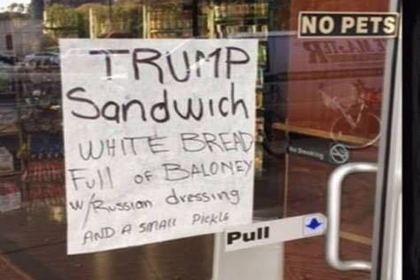 NO PETS
TRUMP
Sandwich
WHITE BREAD
Full of BALONEY
w/Russian dressing
AND A SMALL PICKLE
No Smoking
Pull